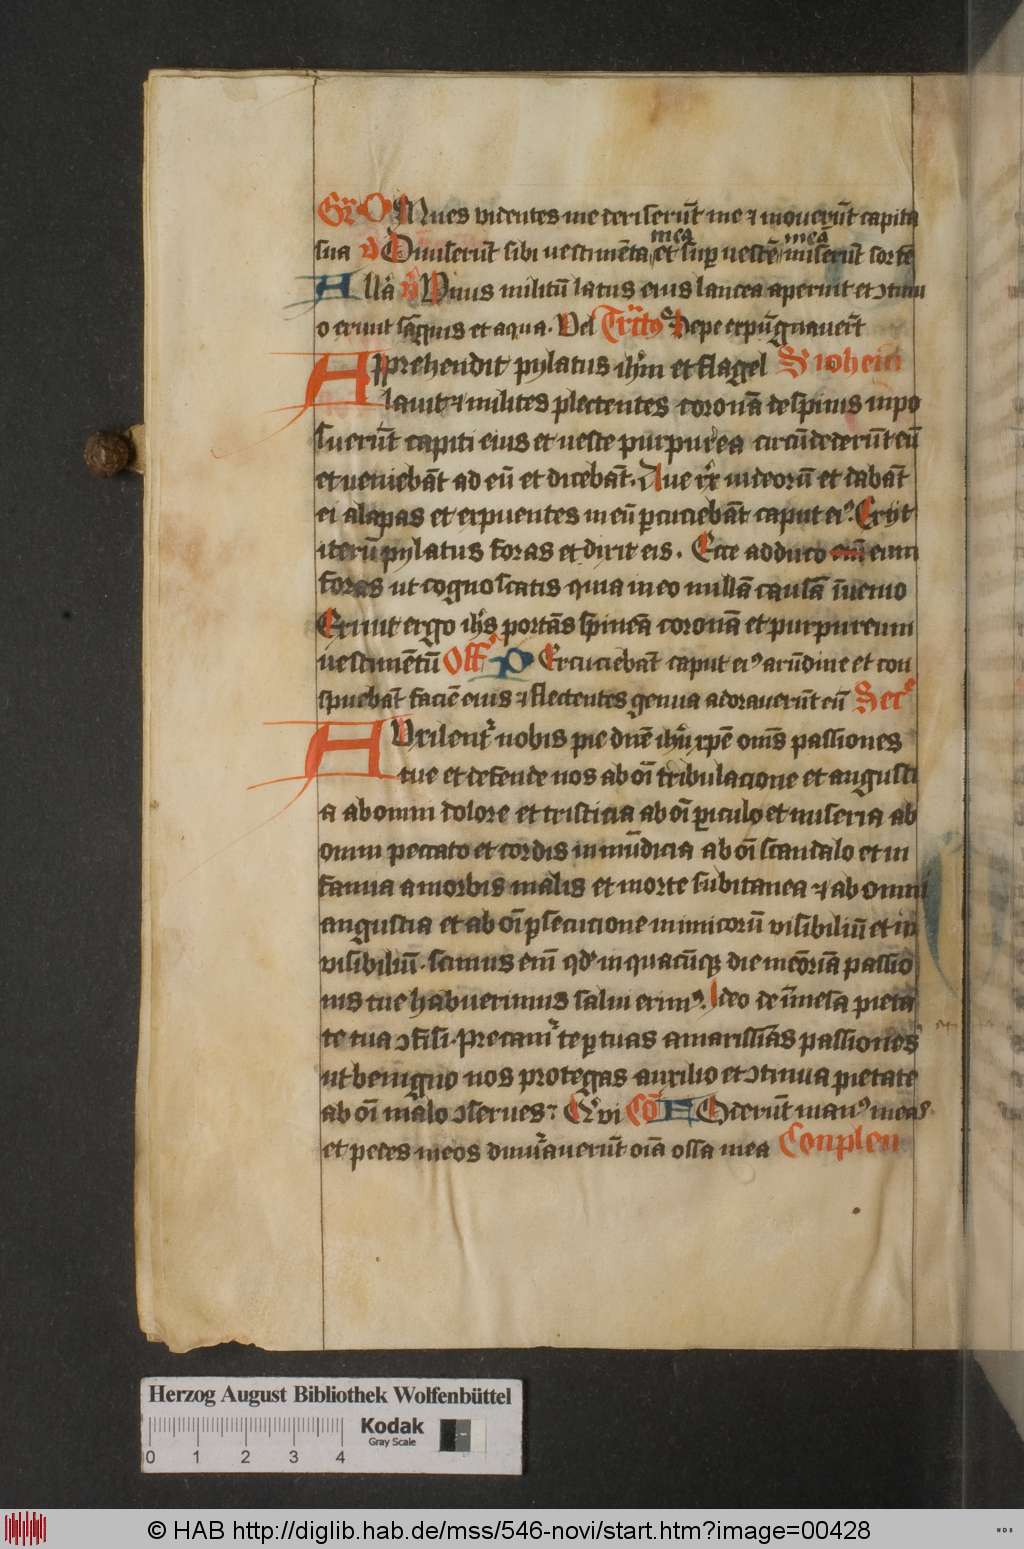 Gr̄ OMnes videntes me deriserūt me ⁊ mouerūt capita
sua v̄ Diuiserūt sibi uestimēta mea et sup uestē meā miserūt sortē
Allā v̄ Vnus militū latus eius lancea aperuit et ↄtinu
o exiuit sāguis et aqua. Vel Trcto Sepe expūgnauerūt
Apprehendit pylatus ihm̄ et flagel S ioheīn
lauit ⁊ milites plectentes coronā de spinis inpo
suerūt capiti eius et ueste purpurea circūdederūt eū
et ueniebāt ad eū et dicebāt. Aue rx iudeorū et dabāt
ei alapas et expuentes in eū pcuciebāt caput eiꝰ. Exijt
iterū pylatus foras et dixit eis. Ecce adduco eum
foras ut cognoscatis quia in eo nullā causā īuenio
Exiuit ergo ihs portās spineā coronā et purpureum
uestimētū Off PErcuciebāt caput eiꝰ arūdine et con
spuebāt faciē eius ⁊ flectentes genua adorauerūt eū Secᵉ
AVxilent nobis pie dn̄e ihū xpē om̄s passiones
tue et defende nos ab oī tribulacione et angusti
a ab omni dolore et tristicia ab oī piculo et miseria ab
omni peccato et cordis inmūdicia ab oī scandalo et in
famia a morbis malis et morte subitanea ⁊ ab omni
angustia et ab oī psecucione inimicorū visibiliū et in
visibiliū. scimus em̄ qd inquacūqꝫ die memoriā passio
nis tue habuerimus salui erimꝰ. Ideo de īmēsa pieta
te tua ↄfisi. precamr te p tuas amarissīas passiones
ut benigno nos protegas auxilio et ↄtinua pietate
ab oī malo ↄserues. Qui Cō FOderūt manꝰ meas
et pedes meos dinūauerūt oīa ossa mea Conplen
Herzog August Bibliothek Wolfenbüttel
Kodak
Gray Scale
0 1 2 3 4
© HAB http://diglib.hab.de/mss/546-novi/start.htm?image=00428